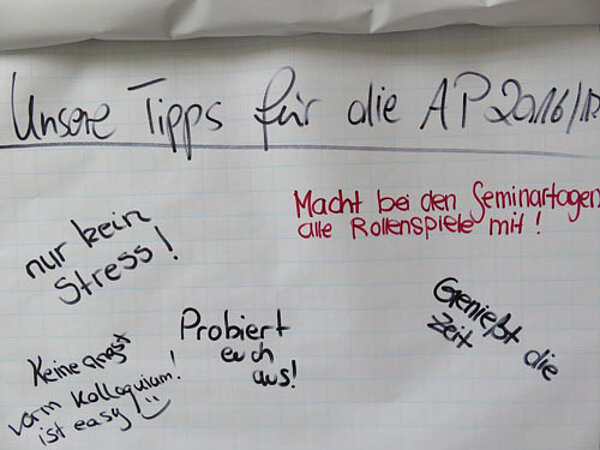 Unsere Tipps für die AP 2016/17
Macht bei den Seminartagen
alle Rollenspiele mit!
nur kein
Stress!
Genießt die
Zeit
Probiert
euch
aus!
Keine angst
vorm Kolloquium!
ist easy!